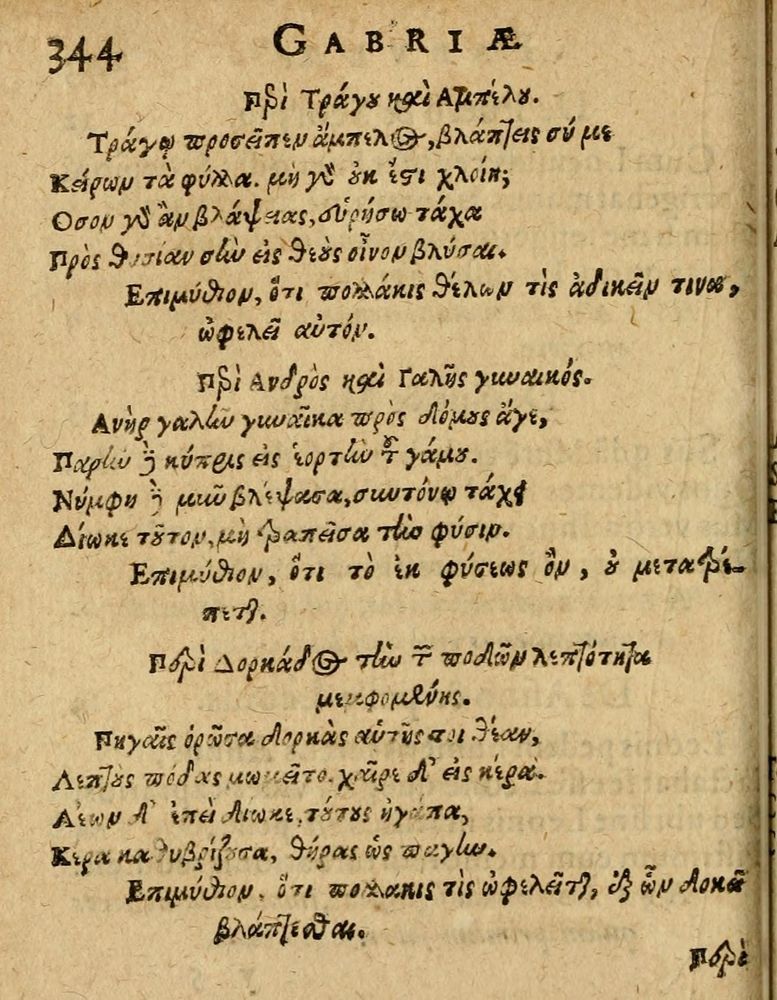 344 GABRIÆ
Περὶ Τράγου καὶ Αμπέλου.
Τράγῳ προσεῖπεν ἄμπελος, βλάπτεις σύ με
Κείρων τὰ φύλλα. μὴ γὸ οὐκ ἔστι χλόη;
Οσον γὸ ἂν βλάψειας, εὑρήσω τάχα
Πρὸς θυσίαν σὴν εἰς θεοὺς οἶνον βλύσαι.
Επιμύθιον, ὅτι πολλάκις θέλων τὶς ἀδικεῖν τινα,
ὠφελεῖ αὐτόν.
Περὶ Ανδρὸς καὶ Γαλῆς γυναικός.
Ανὴρ γαλῆν γυναῖκα πρὸς δόμους ἄγε,
Παρῆν ἢ κύπρις εἰς ἑορτὴν τοῦ γάμου.
Νύμφη ἢ μῦν βλέψασα, συντόνῳ τάχει
Δίωκε τοῦτον, μὴ τραπεῖσα τὴν φύσιν.
Επιμύθιον, ὅτι τὸ ἐκ φύσεως ὂν, οὐ μετατρέ-
πεται.
Περὶ Δορκάδος τὴν τῶν ποδῶν λεπτότητα
μεμφομένης.
Πηγαῖς ὁρῶσα δορκὰς αὑτῆς τοι θέαν,
Λεπτοὺς πόδας μωκεῖτο. χαῖρε δ' εἰς κέρα.
Λέων δ' ἐπεὶ δίωκε, τούτους ἠγάπα,
Κέρα καθυβρίζουσα, θήρας ὡς παγίω.
Επιμύθιον, ὅτι πολλακις τὶς ὠφελεῖται, ἐξ ὧν δοκεῖ
βλάπτεσθαι.
Περὶ